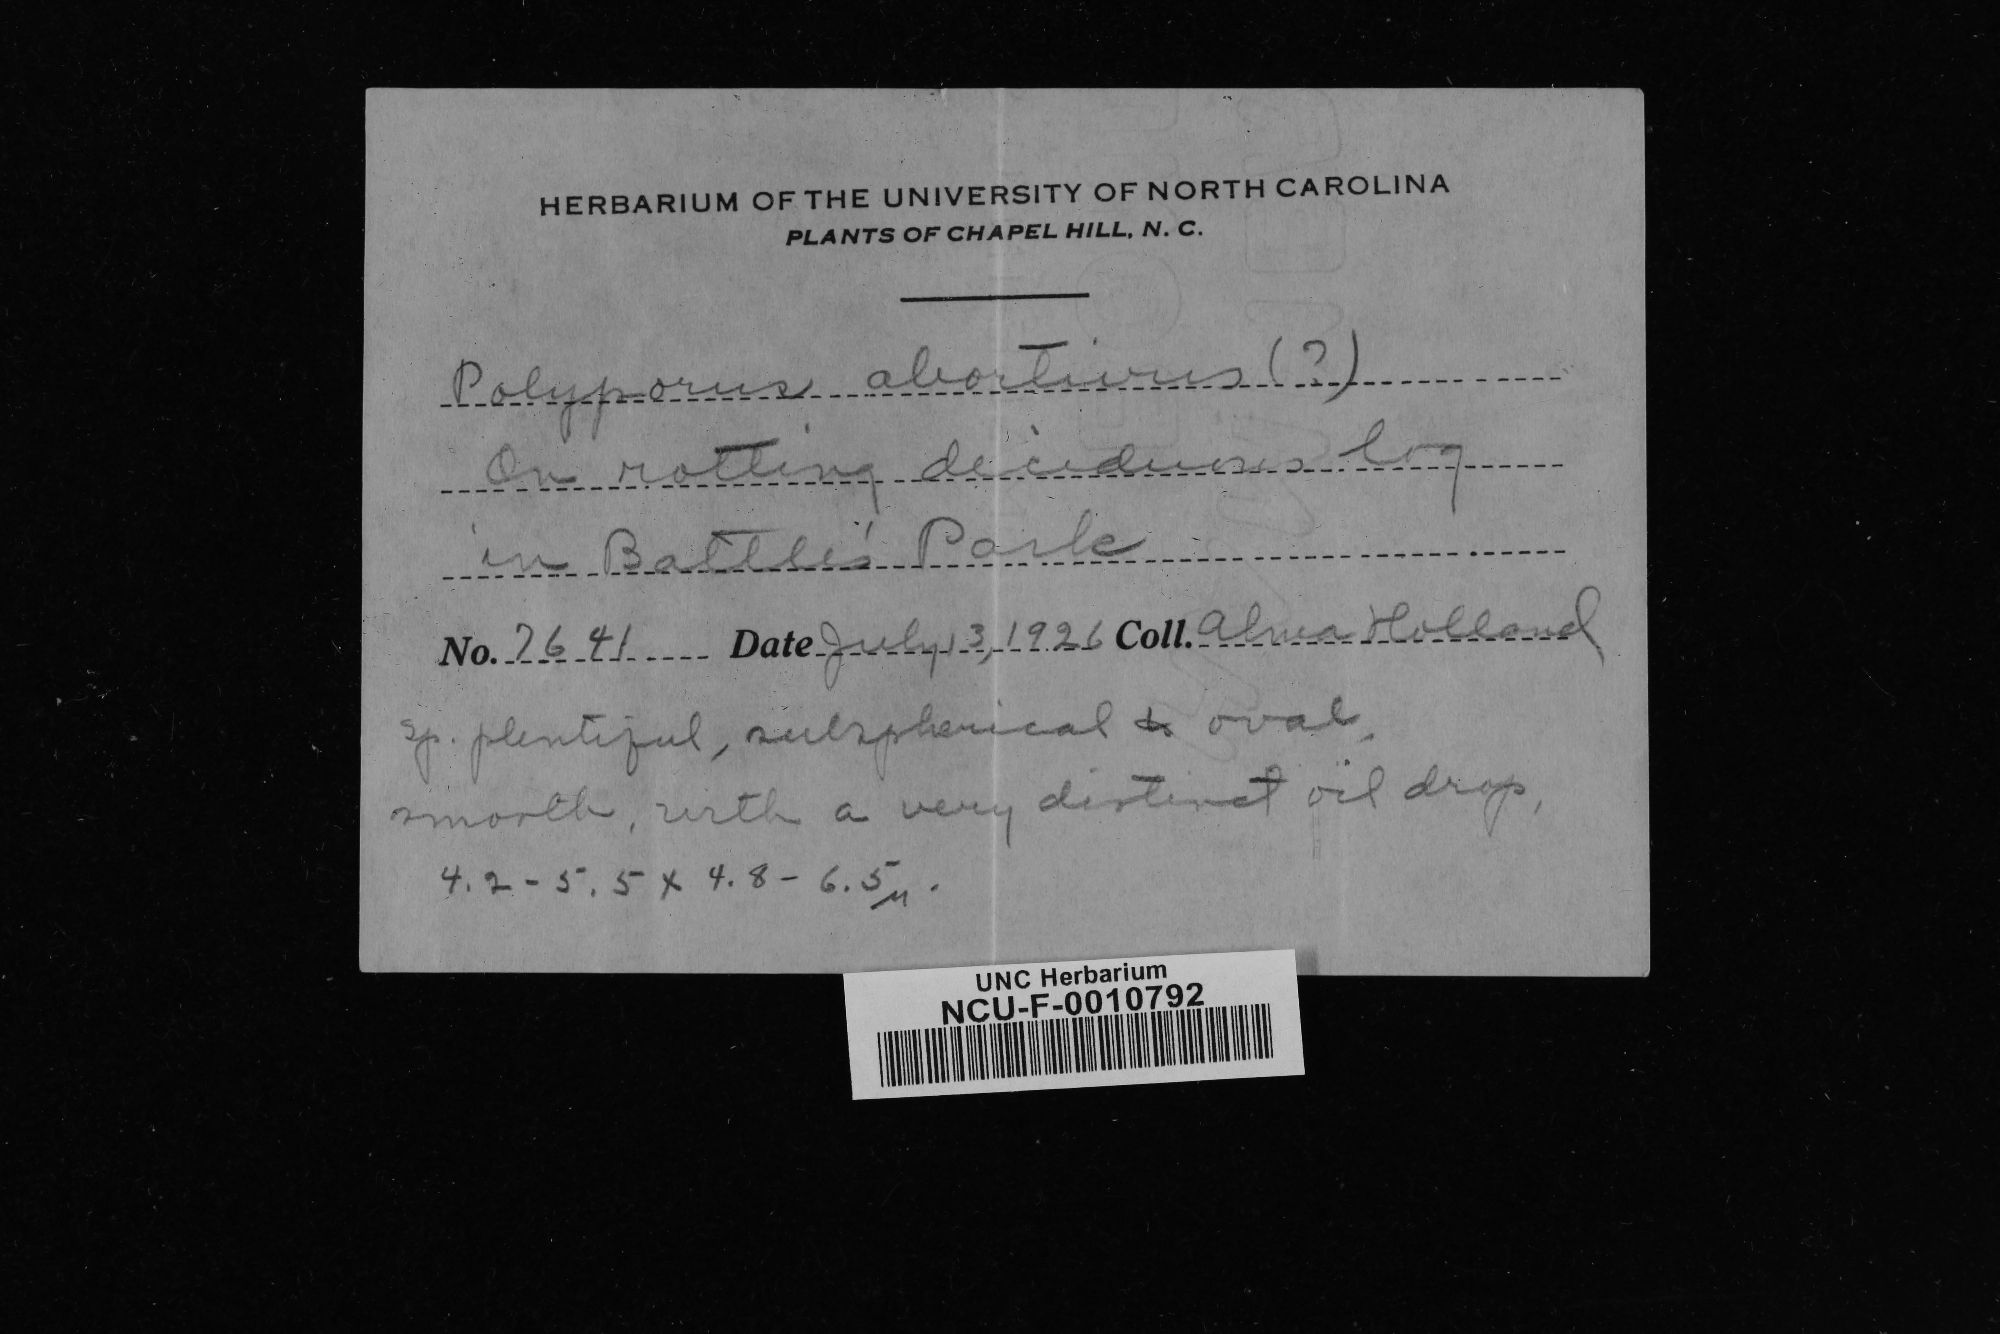 HERBARIUM OF THE UNIVERSITY OF NORTH CAROLINA
PLANTS OF CHAPEL HILL, N. C.
Polyporus abortivus (?)
On rotting deciduous log
in Battle's Park
No. 7641 Date July 13, 1926 Coll. Alma Holland
Sp. plentiful, subspherical to oval,
smooth, with a very distinct oil drop,
4.2 - 5.5 x 4.8 - 6.5 µ.
UNC Herbarium
NCU-F-0010792